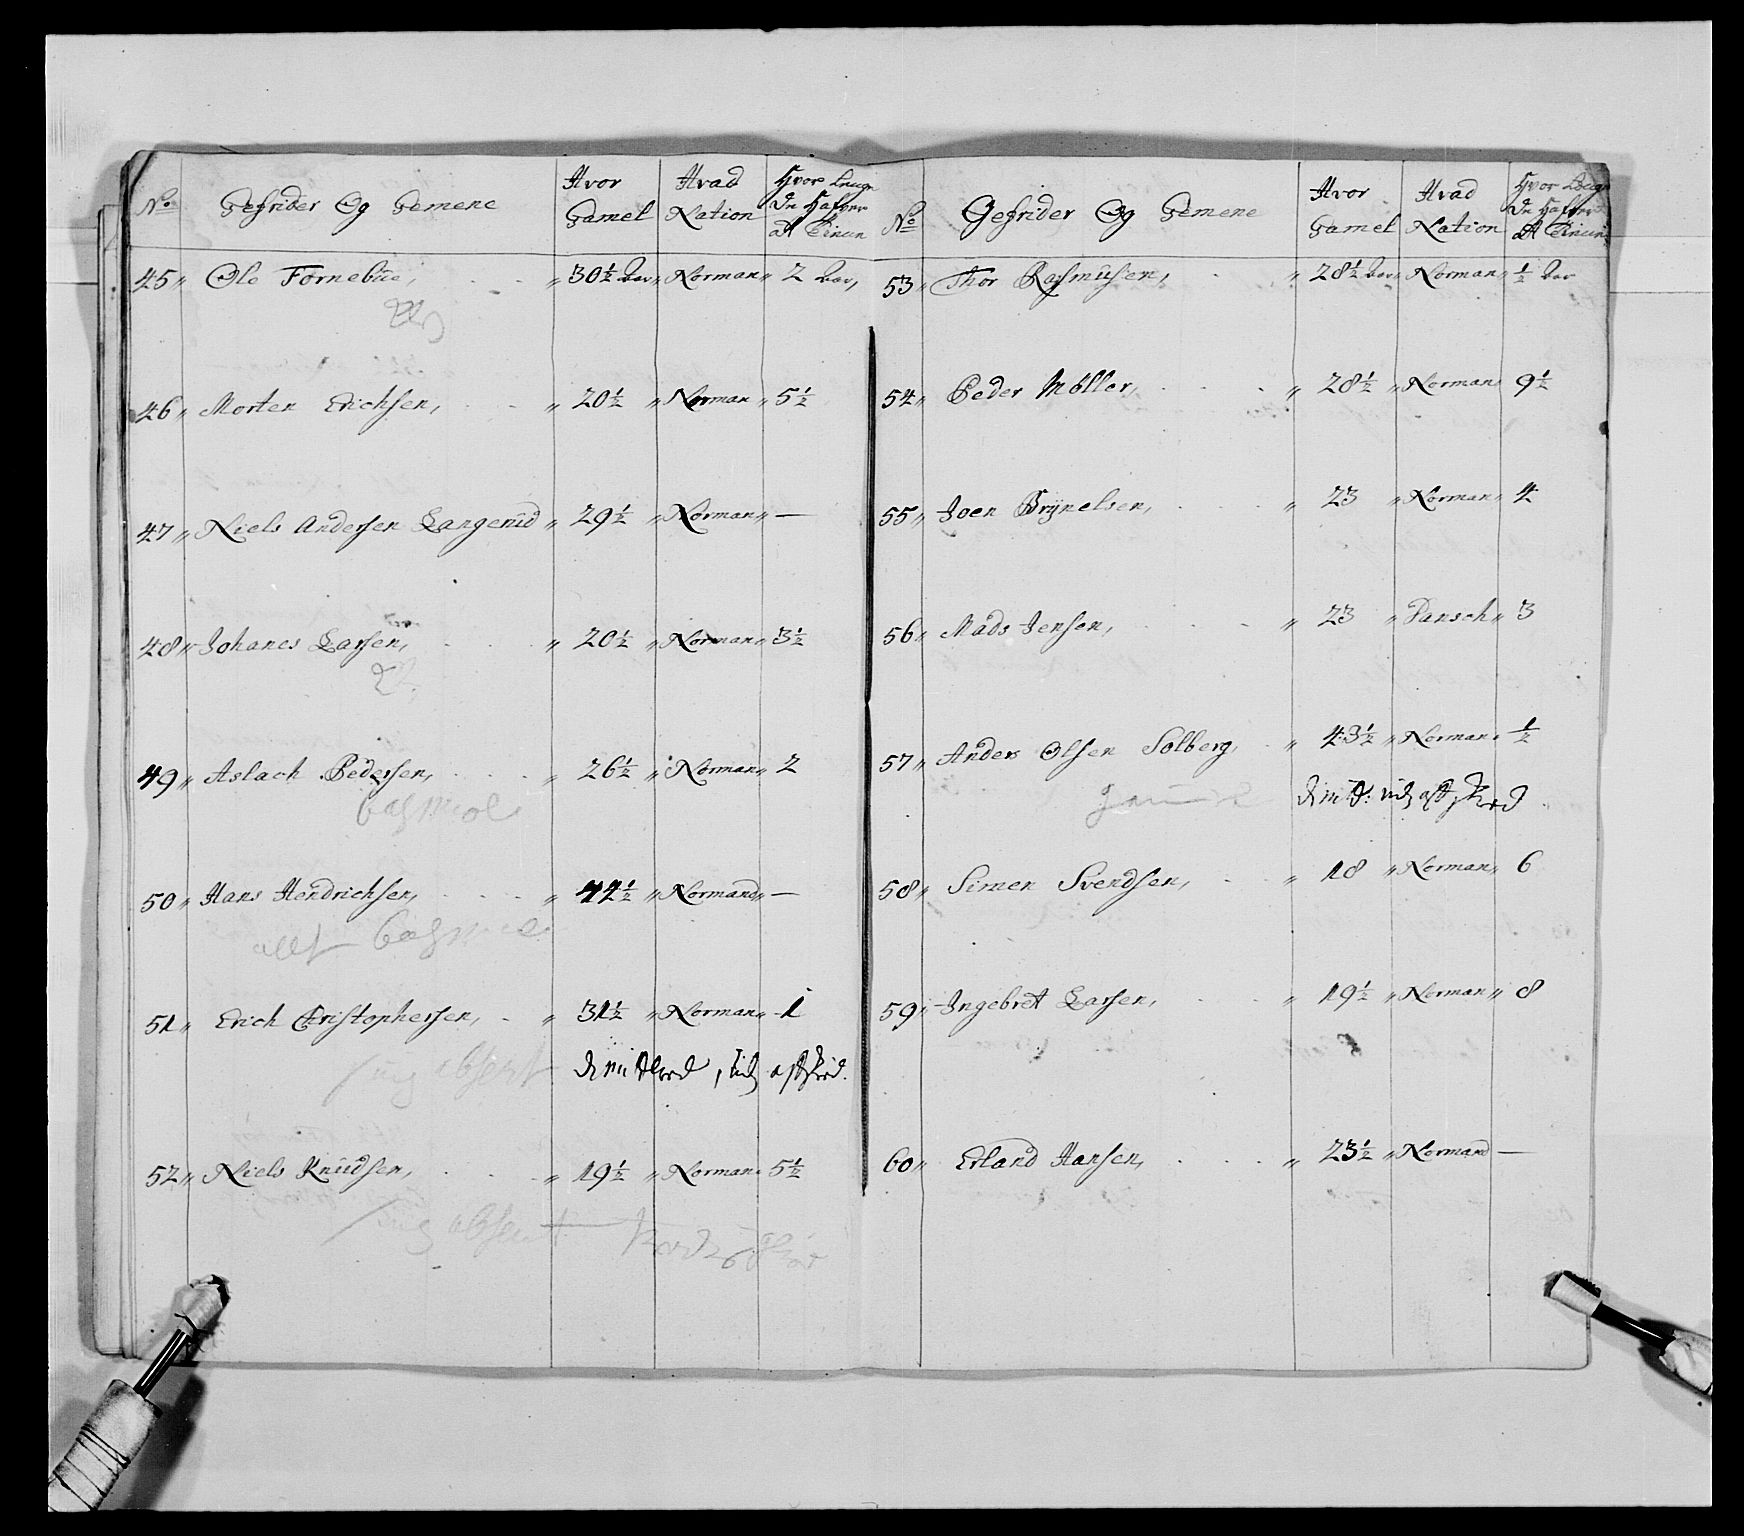 No Gefrider Og Gemene Hvor Gamel Hvad Nation Hvor Lenge De Hafver
45 Ole Fornebüe, 30½ Aar Norman 2 Aar,
46 Morten Erichsen, 20½ Norman 5½
47 Niels Andersen Langerüd 29½ Norman —
48 Johanes Larsen, 20½ Norman 3½
49 Aslach Pedersen, 26½ Norman 2
50 Hans Hendrichsen, 44½ Normand —
51 Erich Christophersen, 31½ Norman 1
52 Niels Knüdsen, 19½ Norman 5½
absent
No Gefrider Og Gemene Hvor Gamel Hvad Nation Hvor Lenge De Hafver
53 Thor Rasmüsen, 28½ Aar Norman ½ Aar
54 Peder Möller, 28½ Norman 9½
55 Joen Brÿnelsen, 23 Norman 4
56 Mads Jensen, 23 Dansch 3
57 Anders Olsen Solberg, 43½ Norman ½
58 Simen Svendsen, 18 Norman 6
59 Ingebret Larsen, 19½ Norman 8
60 Erland Hansen, 23½ Normand —